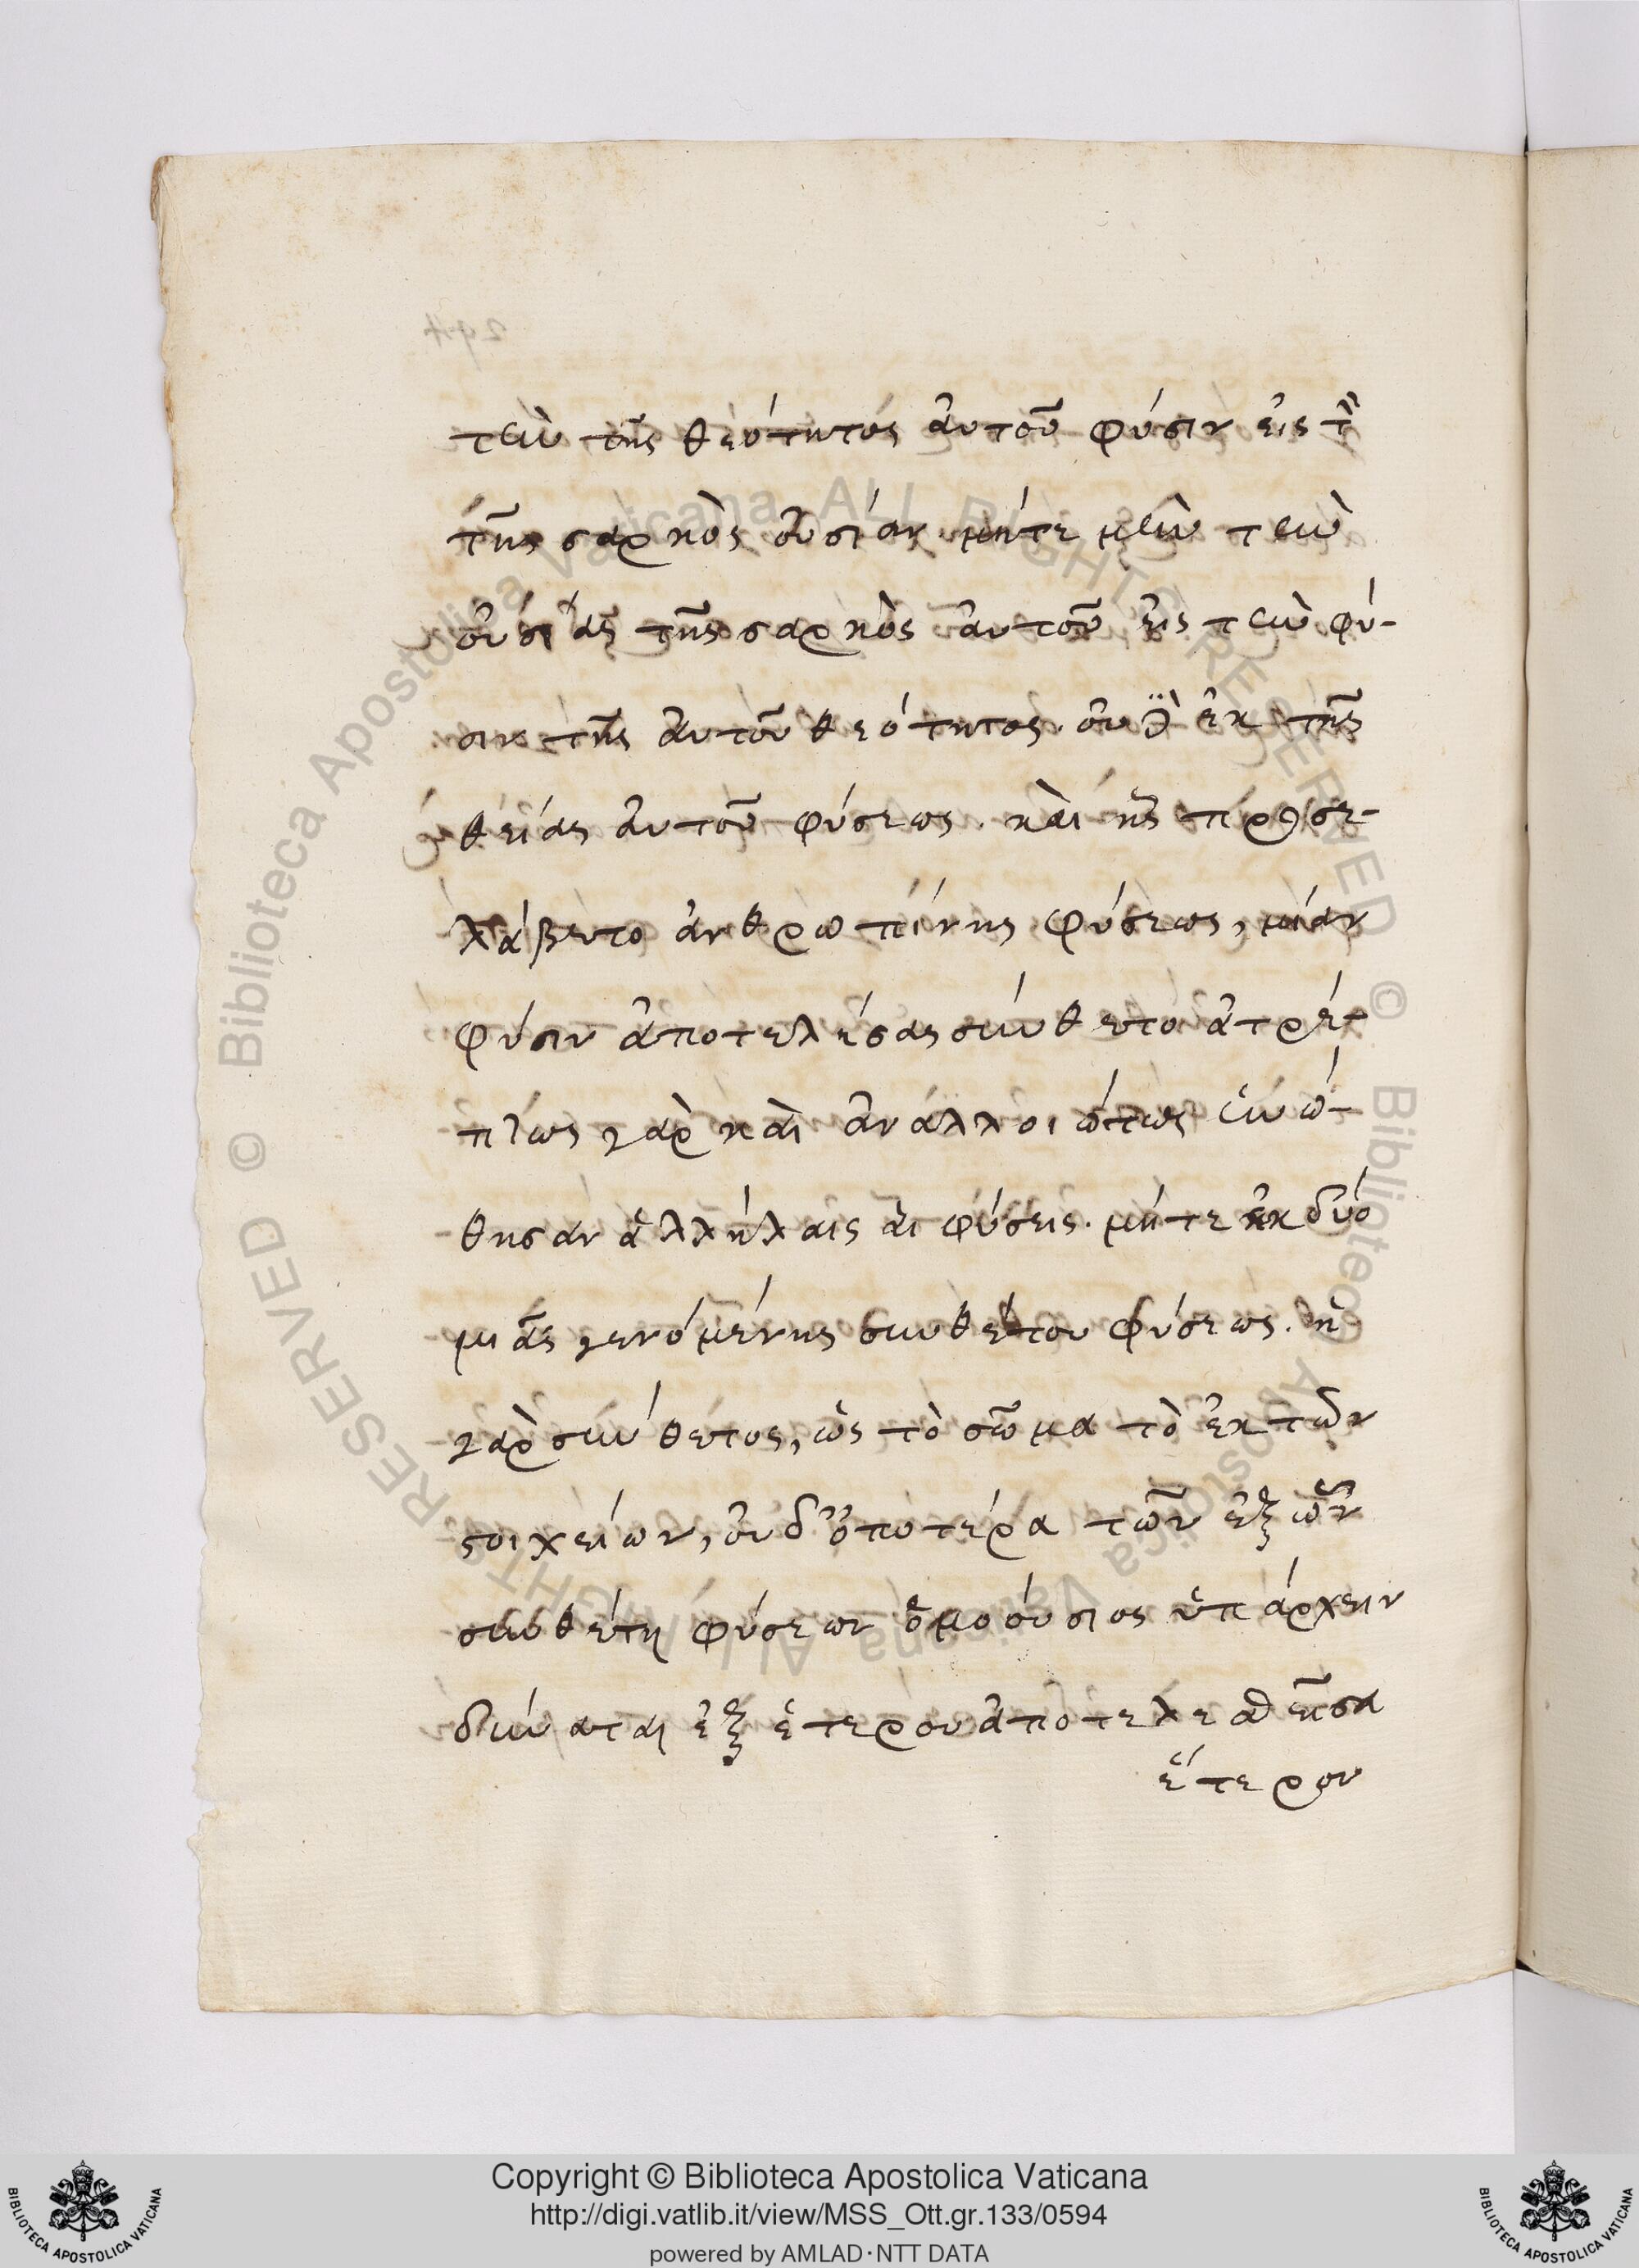 τὴν τῆς θεότητος αὐτοῦ φύσιν εἰς τὴν
τῆς σαρκὸς οὐσίαν· μήτε μὴν τὴν
οὐσίας τῆς σαρκὸς αὐτοῦ εἰς τὴν φύ-
σιν τῆς αὐτοῦ θεότητος· οὐδὲ ἐκ τῆς
θείας αὐτοῦ φύσεως· καὶ ἧς προσε-
λάβετο ἀνθρωπίνης φύσεως, μίαν
φύσιν ἀποτελέσας σύνθετο ἀτρέ-
πτως γὰρ καὶ ἀναλλοιώτως ἡνώ-
θησαν ἀλλήλαις αἱ φύσεις· μήτε ἐκ δύο
μιᾶς γενομένης συνθέτου φύσεως· ἡ
γὰρ σύνθετος, ὡς τὸ σῶμα τὸ ἐκ τῶν
στοιχείων, οὐδ' ὁποτέρα τῶν ἐξ ὧν
συνθέτη φύσεων ὁμοούσιος ὑπάρχειν
δύναται ἐξ ἑτέρου ἀποτελεσθεῖσα
ἕτερον
294
Copyright © Biblioteca Apostolica Vaticana
http://digi.vatlib.it/view/MSS_Ott.gr.133/0594
powered by AMLAD·NTT DATA
BIBLIOTECA APOSTOLICA VATICANA
BIBLIOTECA APOSTOLICA VATICANA
© Biblioteca Apostolica Vaticana ALL RIGHTS RESERVED
© Biblioteca Apostolica Vaticana ALL RIGHTS RESERVED